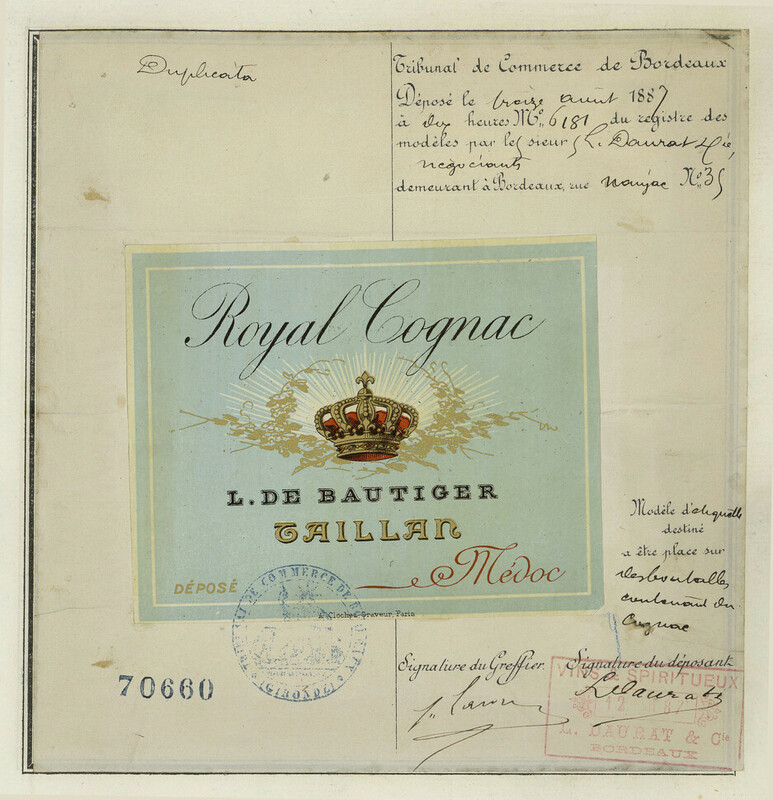 Duplicata
Tribunal de Commerce de Bordeaux
Déposé le treize août 1887
à dix heures No. 6181 du registre des
modèles par les sieurs L. Daurat & Cie,
négociants
demeurant à Bordeaux, rue Naujac No. 35
Royal Cognac
L. DE BAUTIGER
TAILLAN
Médoc
DÉPOSÉ
A. Clochez, Graveur, Paris
Modèle d'etiquette
destiné
a être place sur
des bouteilles
contenant du
Cognac
TRIBUNAL DE COMMERCE DE BORDEAUX
(GIRONDE)
70660
Signature du Greffier.
Signature du déposant
VINS & SPIRITUEUX
L. DAURAT & Cie
BORDEAUX